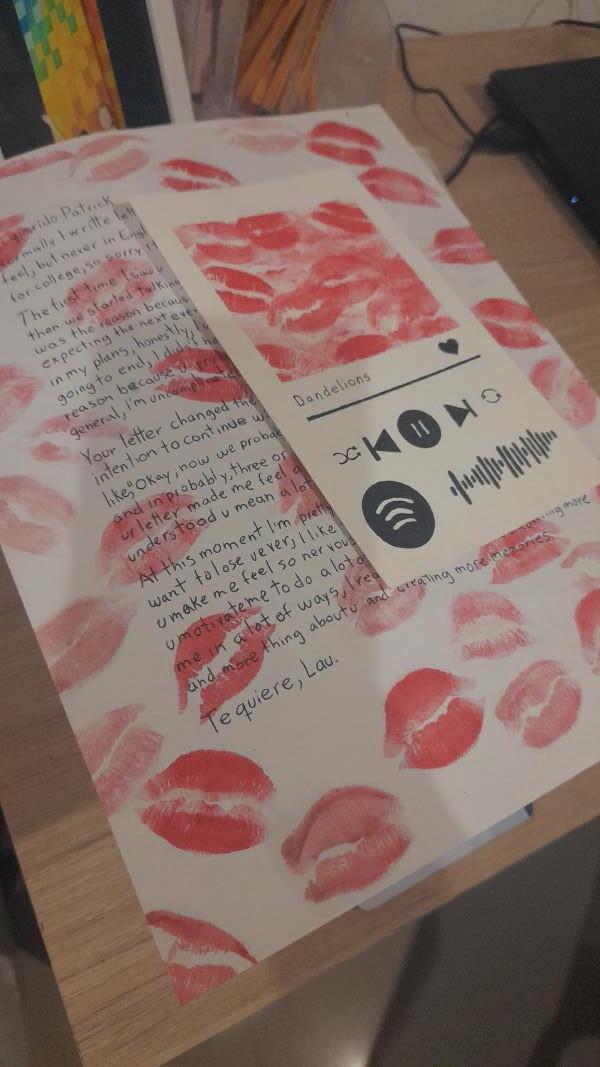 querido Patrick
normally I write lett
feel, but never in Engl
for college, so sorry
The first time I saw u
then we started talkin
was the reason becaus
expecting the next eve
in my plans, honestly, I
going to end, I didn't
reason because u
general, I'm uncomplicate
Your letter changed the
intention to continue
like, "Okay, now we proba
and in probably, three or
ur letter made me feel
understood u mean a lot
At this moment I'm pretty
want to lose u ever, I like
u make me feel so nervous
u motivate me to do a lot o
me in a lot of ways,
and more thing about u and creating more memories.
more
Te quiere, Lau.
Dandelions